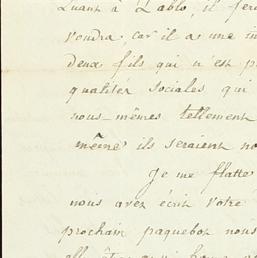 Quant à Pablo, il fera
voudra, car il a une in
deux fils qui n'est p
qualités sociales qui
nous-mêmes tellement
même ils seraient no
Je me flatte
nous avez écrit votre
prochain paquebot nous